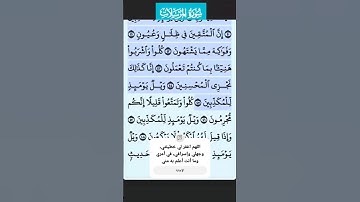 سورة المرسلات
إِنَّ الْمُتَّقِينَ فِي ظِلَالٍ وَعُيُونٍ
وَفَوَاكِهَ مِمَّا يَشْتَهُونَ كُلُوا وَاشْرَبُوا
هَنِيئًا بِمَا كُنتُمْ تَعْمَلُونَ إِنَّا كَذَٰلِكَ
نَجْزِي الْمُحْسِنِينَ وَيْلٌ يَوْمَئِذٍ
لِّلْمُكَذِّبِينَ كُلُوا وَتَمَتَّعُوا قَلِيلًا إِنَّكُم
مُّجْرِمُونَ وَيْلٌ يَوْمَئِذٍ لِّلْمُكَذِّبِينَ
وَإِذَا قِيلَ لَهُمُ ارْكَعُوا لَا يَرْكَعُونَ وَيْلٌ
يَوْمَئِذٍ
حَدِيثٍ
اللهم اغفر لي خطيئتي،
وجهلي وإسرافي في أمري
وما أنت أعلم به مني